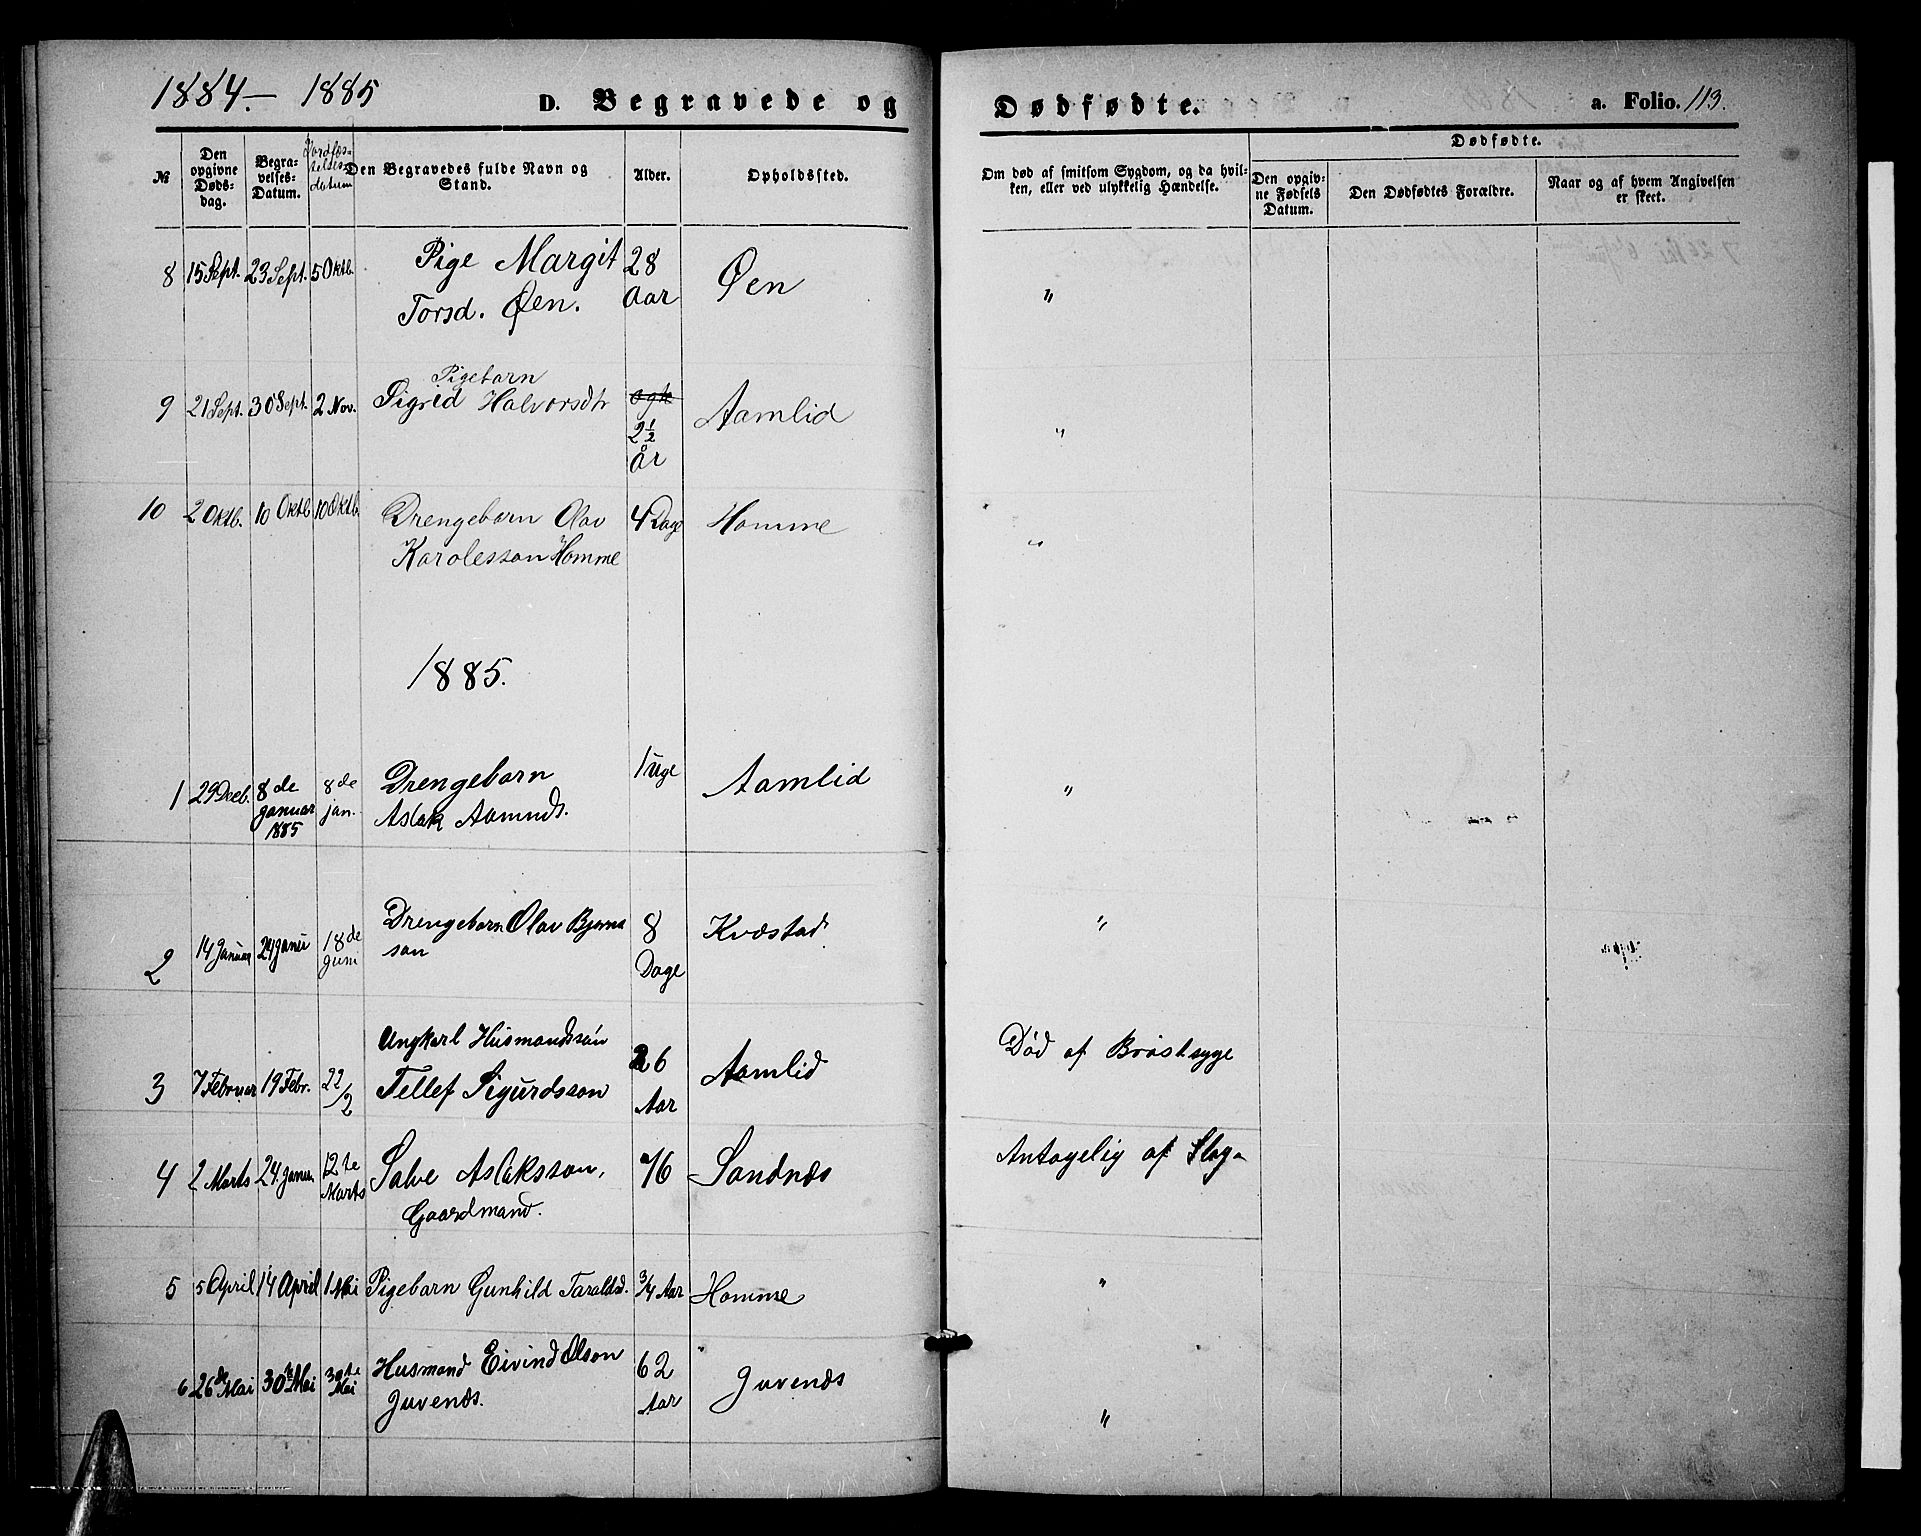 1884.- 1885
D. Begravede og Dødfødte. a. Folio. 113.
№ Den opgivne Døds-dag. Begra-velses-Datum. Jordfæs-telses-datum Den Begravedes fulde Navn og Stand. Alder. Opholdssted. Om død af smitsom Sygdom, og da hvil-ken, eller ved ulykkelig Hændelse. Dødfødte. Den opgiv-ne Fødsels Datum. Den Dødfødtes Forældre. Naar og af hvem Angivelsen er skeet.
8 15 Sept. 23 Sept. 5 Oktb. Pige Margit 28
Torsd. Øen. Aar Øen "
Pigebarn
9 21 Sept. 30 Sept. 2 Nov. Sigrid Halvorsdtr Aamlid "
2½
år
10 2 Oktb. 10 Oktb 10 Oktb. Drengebarn Olav 4 Dage Homme "
Karolesson Homme
1885.
1 29 Decb. 8de Januar 1885 8de jan. Drengebarn 1 Uge Aamlid "
Aslak Aamunds.
2 14 Januar 24 Januar 18de Juni Drengebarn Olav Bjørns 8 Kvæstad "
son Dage
Ungkarl Husmandssøn
3 7 Februar 19 Febr. 22/2 Tellef Sigurdsson 26 Aar Aamlid Død af Brøstsyge
4 2 Marts 24. Januar 12te Marts Salve Aslaksson, 76 Sandnæs Antagelig af Slag.
Gaardmand.
5 5 April 14 April 1 Mai Pigebarn Gunhild Taraldsd. ¾ Aar Homme "
6 26de Mai 30te Mai 30te Mai Husmand Eivind Olson 62 Juvenæs
Juvenæs. Aar "